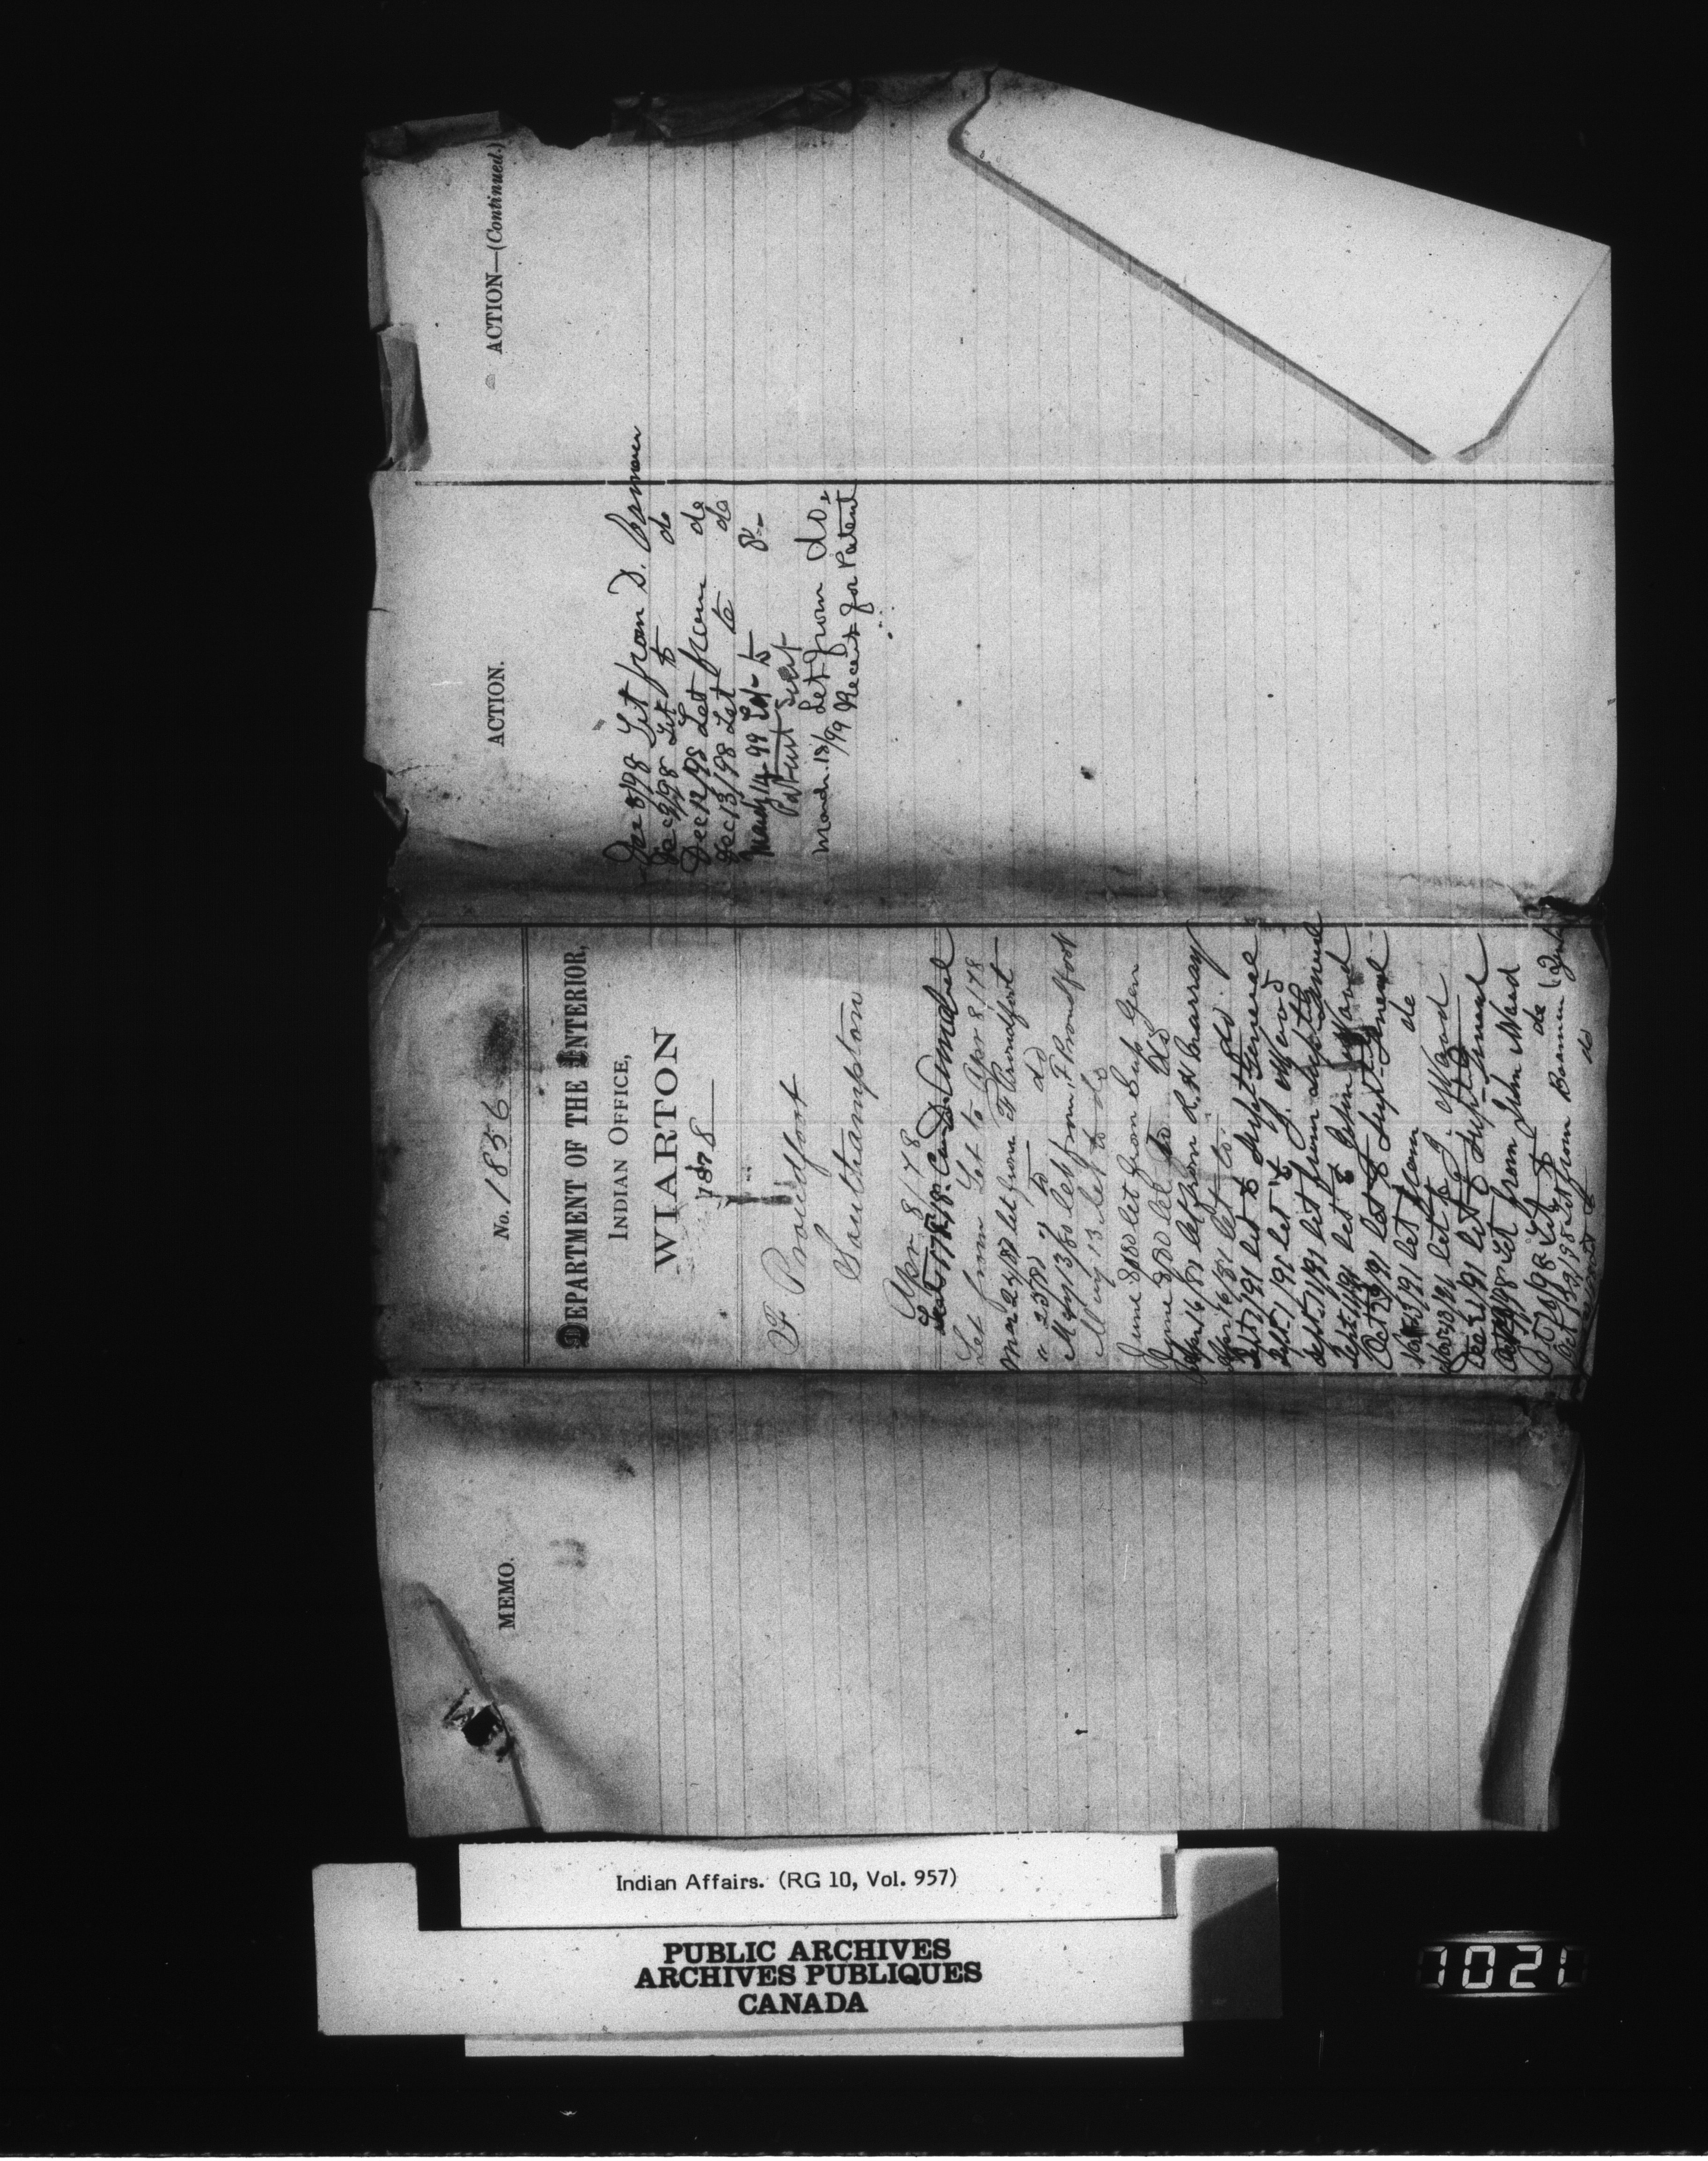 No. 1856
DEPARTMENT OF THE INTERIOR,
INDIAN OFFICE,
WIARTON
1878
F. Proudfoot
Southampton
Apr 8/78
Let from Let to Apr 8/78
Mar 24/80 let from F Proudfoot
" 25/80 " to do
May 13/80 let from F Proudfoot
May 13 let to do
June 8/80 let from Sup Gen
June 8/80 let to do
Apr 16/81 let from R. H. Murray
Apr 16/81 let to do
Sept 7/91 let to Supt General
Sept 7/91 let to J. Ward
Sept 11/91 let from Supt General
Sept 11/91 let to John Ward
Oct 29/91 let to Supt General
Nov 3/91 let from do
Nov 10/91 let to J. Ward
Dec 21/91 let to Supt General
Let from John Ward
Oct 10/98 Let to do
Oct 12/98 Let from Bowman
do
ACTION.
Dec 8/98 Let from D. Bowman
Dec 9/98 Let to do
Dec 12/98 Let from do
Dec 13/98 Let to do
March 14 99 Let to
Patent sent
March 18/99 Let from do
Receipt for Patent
ACTION—(Continued.)
MEMO.
Indian Affairs. (RG 10, Vol. 957)
PUBLIC ARCHIVES
ARCHIVES PUBLIQUES
CANADA
1021